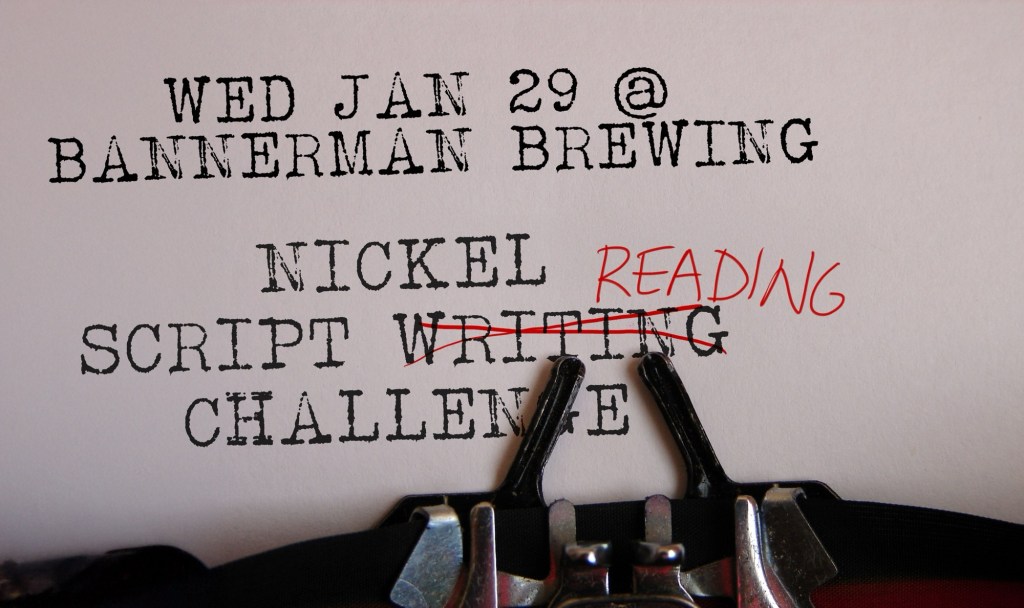 WED JAN 29 @
BANNERMAN BREWING
NICKEL READING
SCRIPT WRITING
CHALLENGE